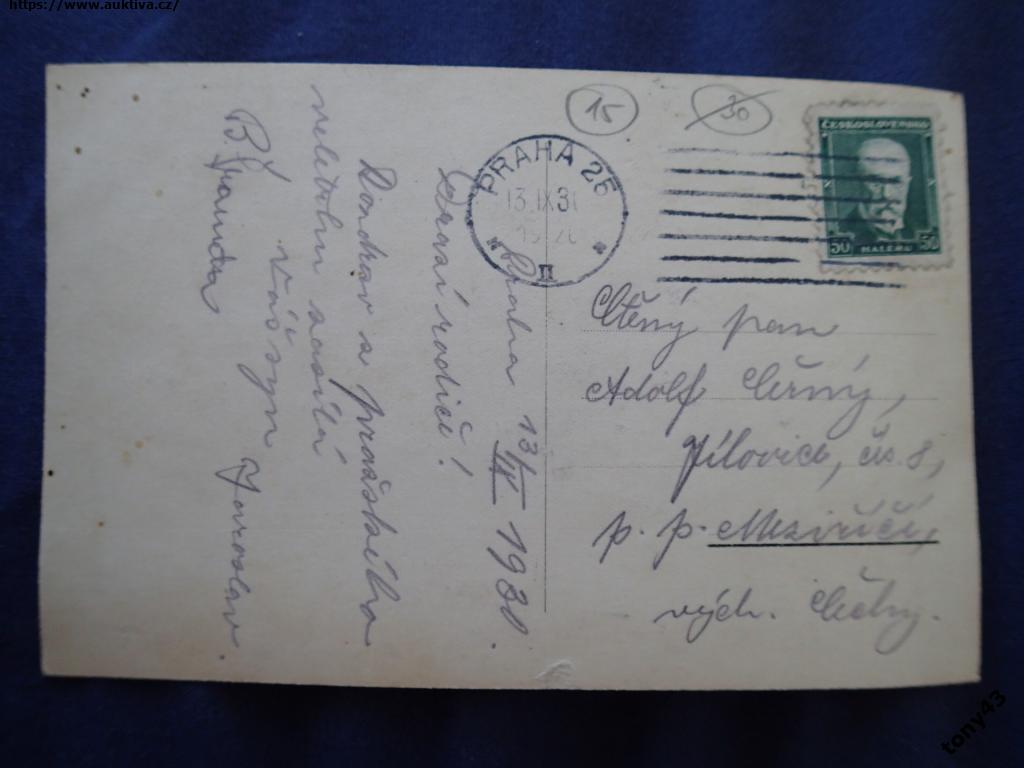 https://www.auktiva.cz/
15
30
PRAHA 25
13.IX.30
II
ČESKOSLOVENSKO
50 HALÉŘŮ 50
Praha 13/IX 1930.
Drazí rodiče!
Pozdrav z pražského
veletrhu zasílá
Váš syn Jaroslav
B. Franta
Ctěný pan
Adolf Černý,
Jílovice, čís. 8,
p. p. Meziříčí,
vých. Čechy.
tony43